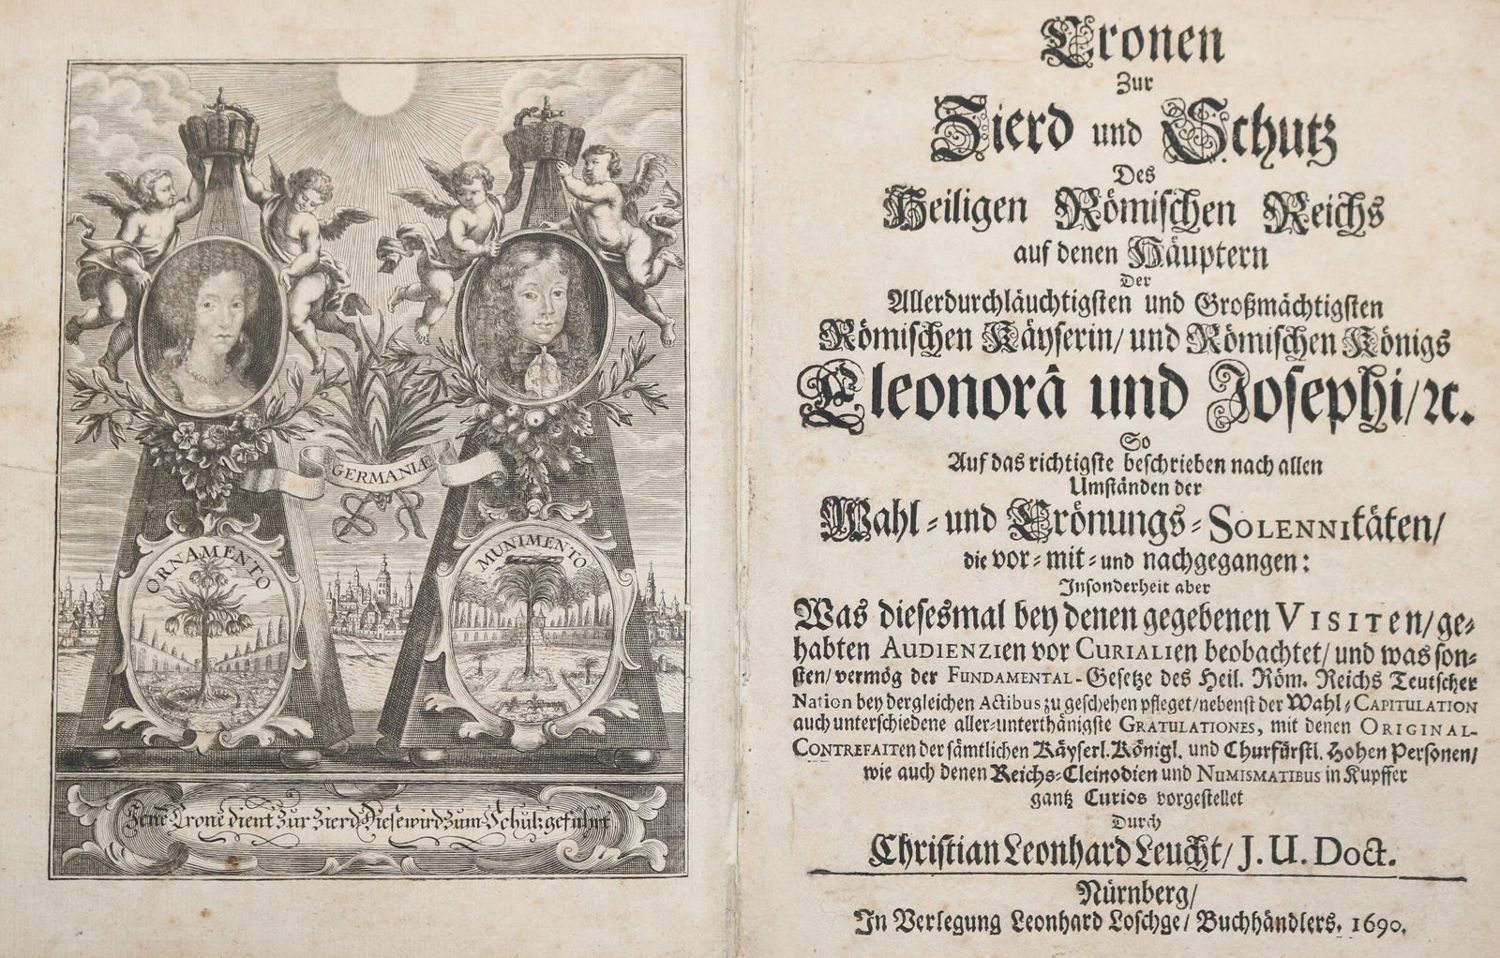 GERMANIÆ
ORNAMENTO
MUNIMENTO
Jene Crone dient zur Zierd Diese wird zum Schutz geführt
Cronen
Zur
Zierd und Schutz
Des
Heiligen Römischen Reichs
auf denen Häuptern
Der
Allerdurchläuchtigsten und Großmächtigsten
Römischen Käyserin/ und Römischen Königs
Eleonorâ und Josephi/ ꝛc.
So
Auf das richtigste beschrieben nach allen
Umständen der
Wahl- und Crönungs-SOLENNItäten/
die vor- mit- und nachgegangen:
Insonderheit aber
Was diesesmal bey denen gegebenen VISITen/ ge-
habten AUDIENZIen vor CURIALIen beobachtet/ und was son-
sten/ vermög der FUNDAMENTAL-Gesetze des Heil. Röm. Reichs Teutscher
Nation bey dergleichen Actibus zu geschehen pfleget/ nebenst der Wahl-CAPITULATION
auch unterschiedene aller-unterthänigste GRATULATIONES, mit denen ORIGINAL-
CONTREFAITen der sämtlichen Käyserl. Königl. und Churfürstl. Hohen Personen/
wie auch denen Reichs-Cleinodien und NUMISMATIBUS in Kupffer
gantz Curios vorgestellet
Durch
Christian Leonhard Leucht/ J. U. Doct.
Nürnberg/
In Verlegung Leonhard Loschge/ Buchhändlers. 1690.